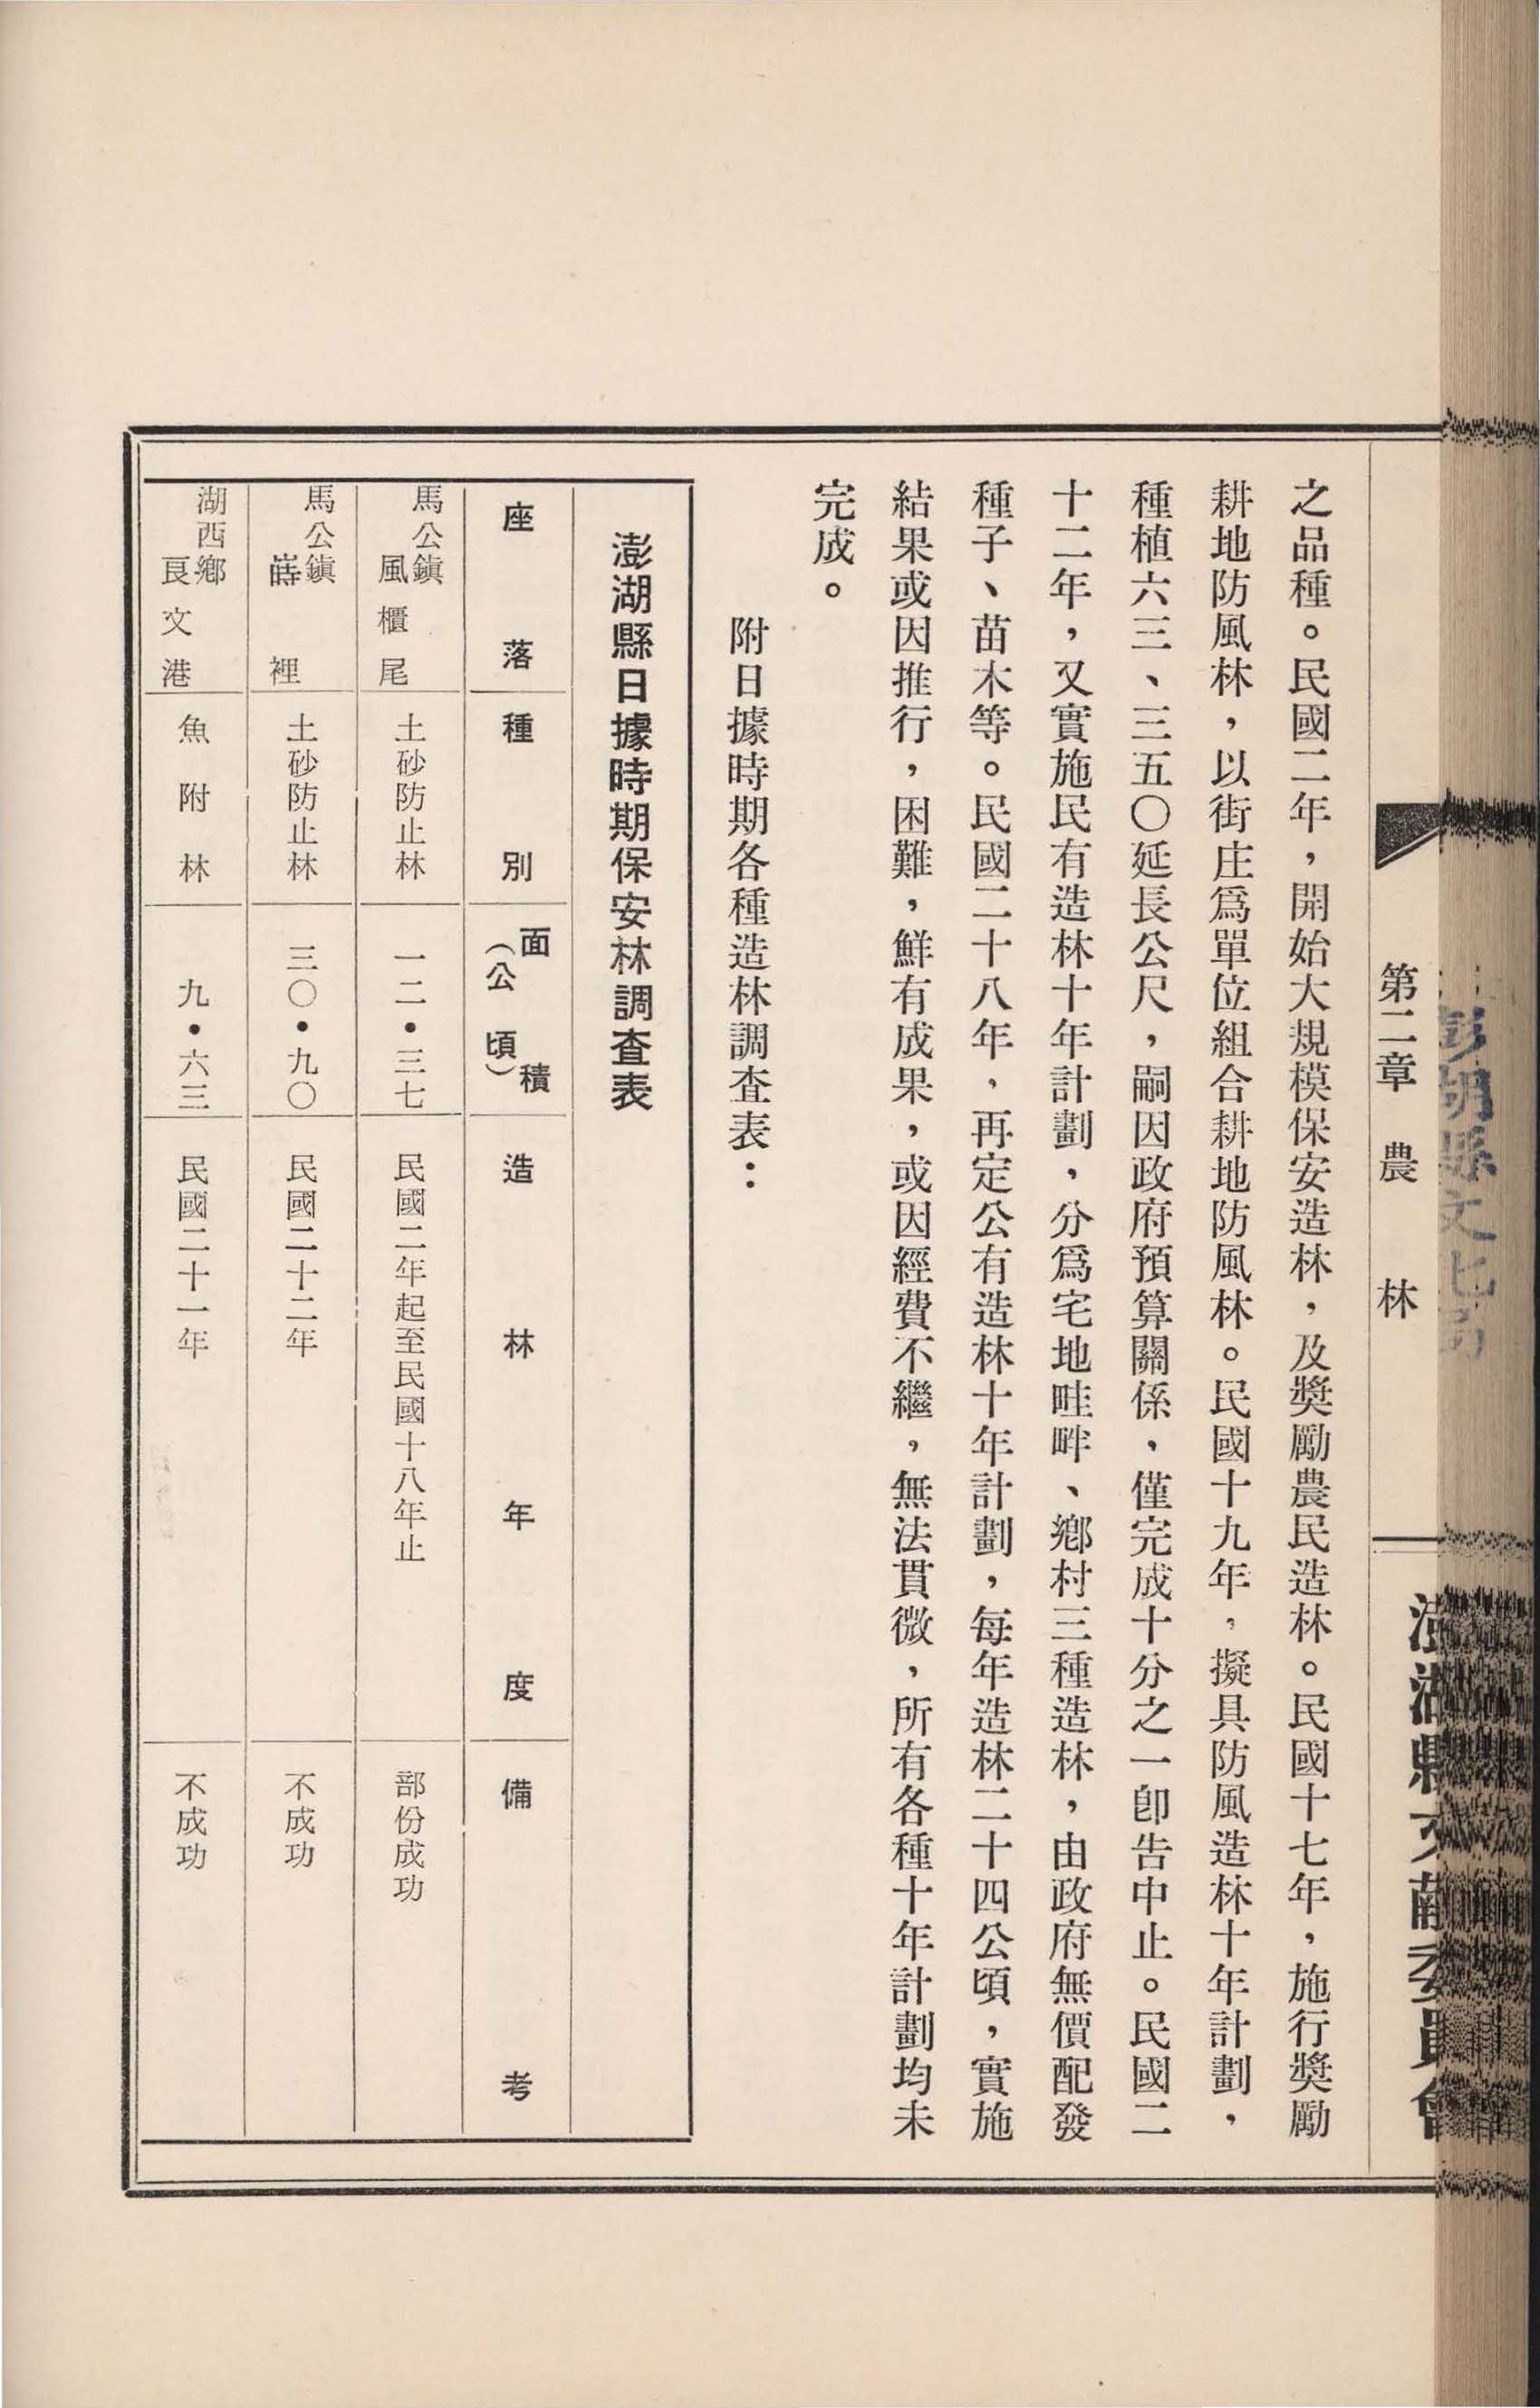 第二章　農　林
澎湖縣文獻委員會
澎湖縣文化局
之品種。民國二年，開始大規模保安造林，及獎勵農民造林。民國十七年，施行獎勵
耕地防風林，以街庄爲單位組合耕地防風林。民國十九年，擬具防風造林十年計劃，
種植六三、三五〇延長公尺，嗣因政府預算關係，僅完成十分之一卽告中止。民國二
十二年，又實施民有造林十年計劃，分爲宅地畦畔、鄕村三種造林，由政府無價配發
種子、苗木等。民國二十八年，再定公有造林十年計劃，每年造林二十四公頃，實施
結果或因推行，困難，鮮有成果，或因經費不繼，無法貫微，所有各種十年計劃均未
完成。
附日據時期各種造林調查表：
澎湖縣日據時期保安林調查表
座落　種別　面積（公頃）　造林年度　備考
馬公鎭風櫃尾　土砂防止林　一二・三七　民國二年起至民國十八年止　部份成功
馬公鎭蒔裡　土砂防止林　三〇・九〇　民國二十二年　不成功
湖西鄕良文港　魚附林　九・六三　民國二十一年　不成功